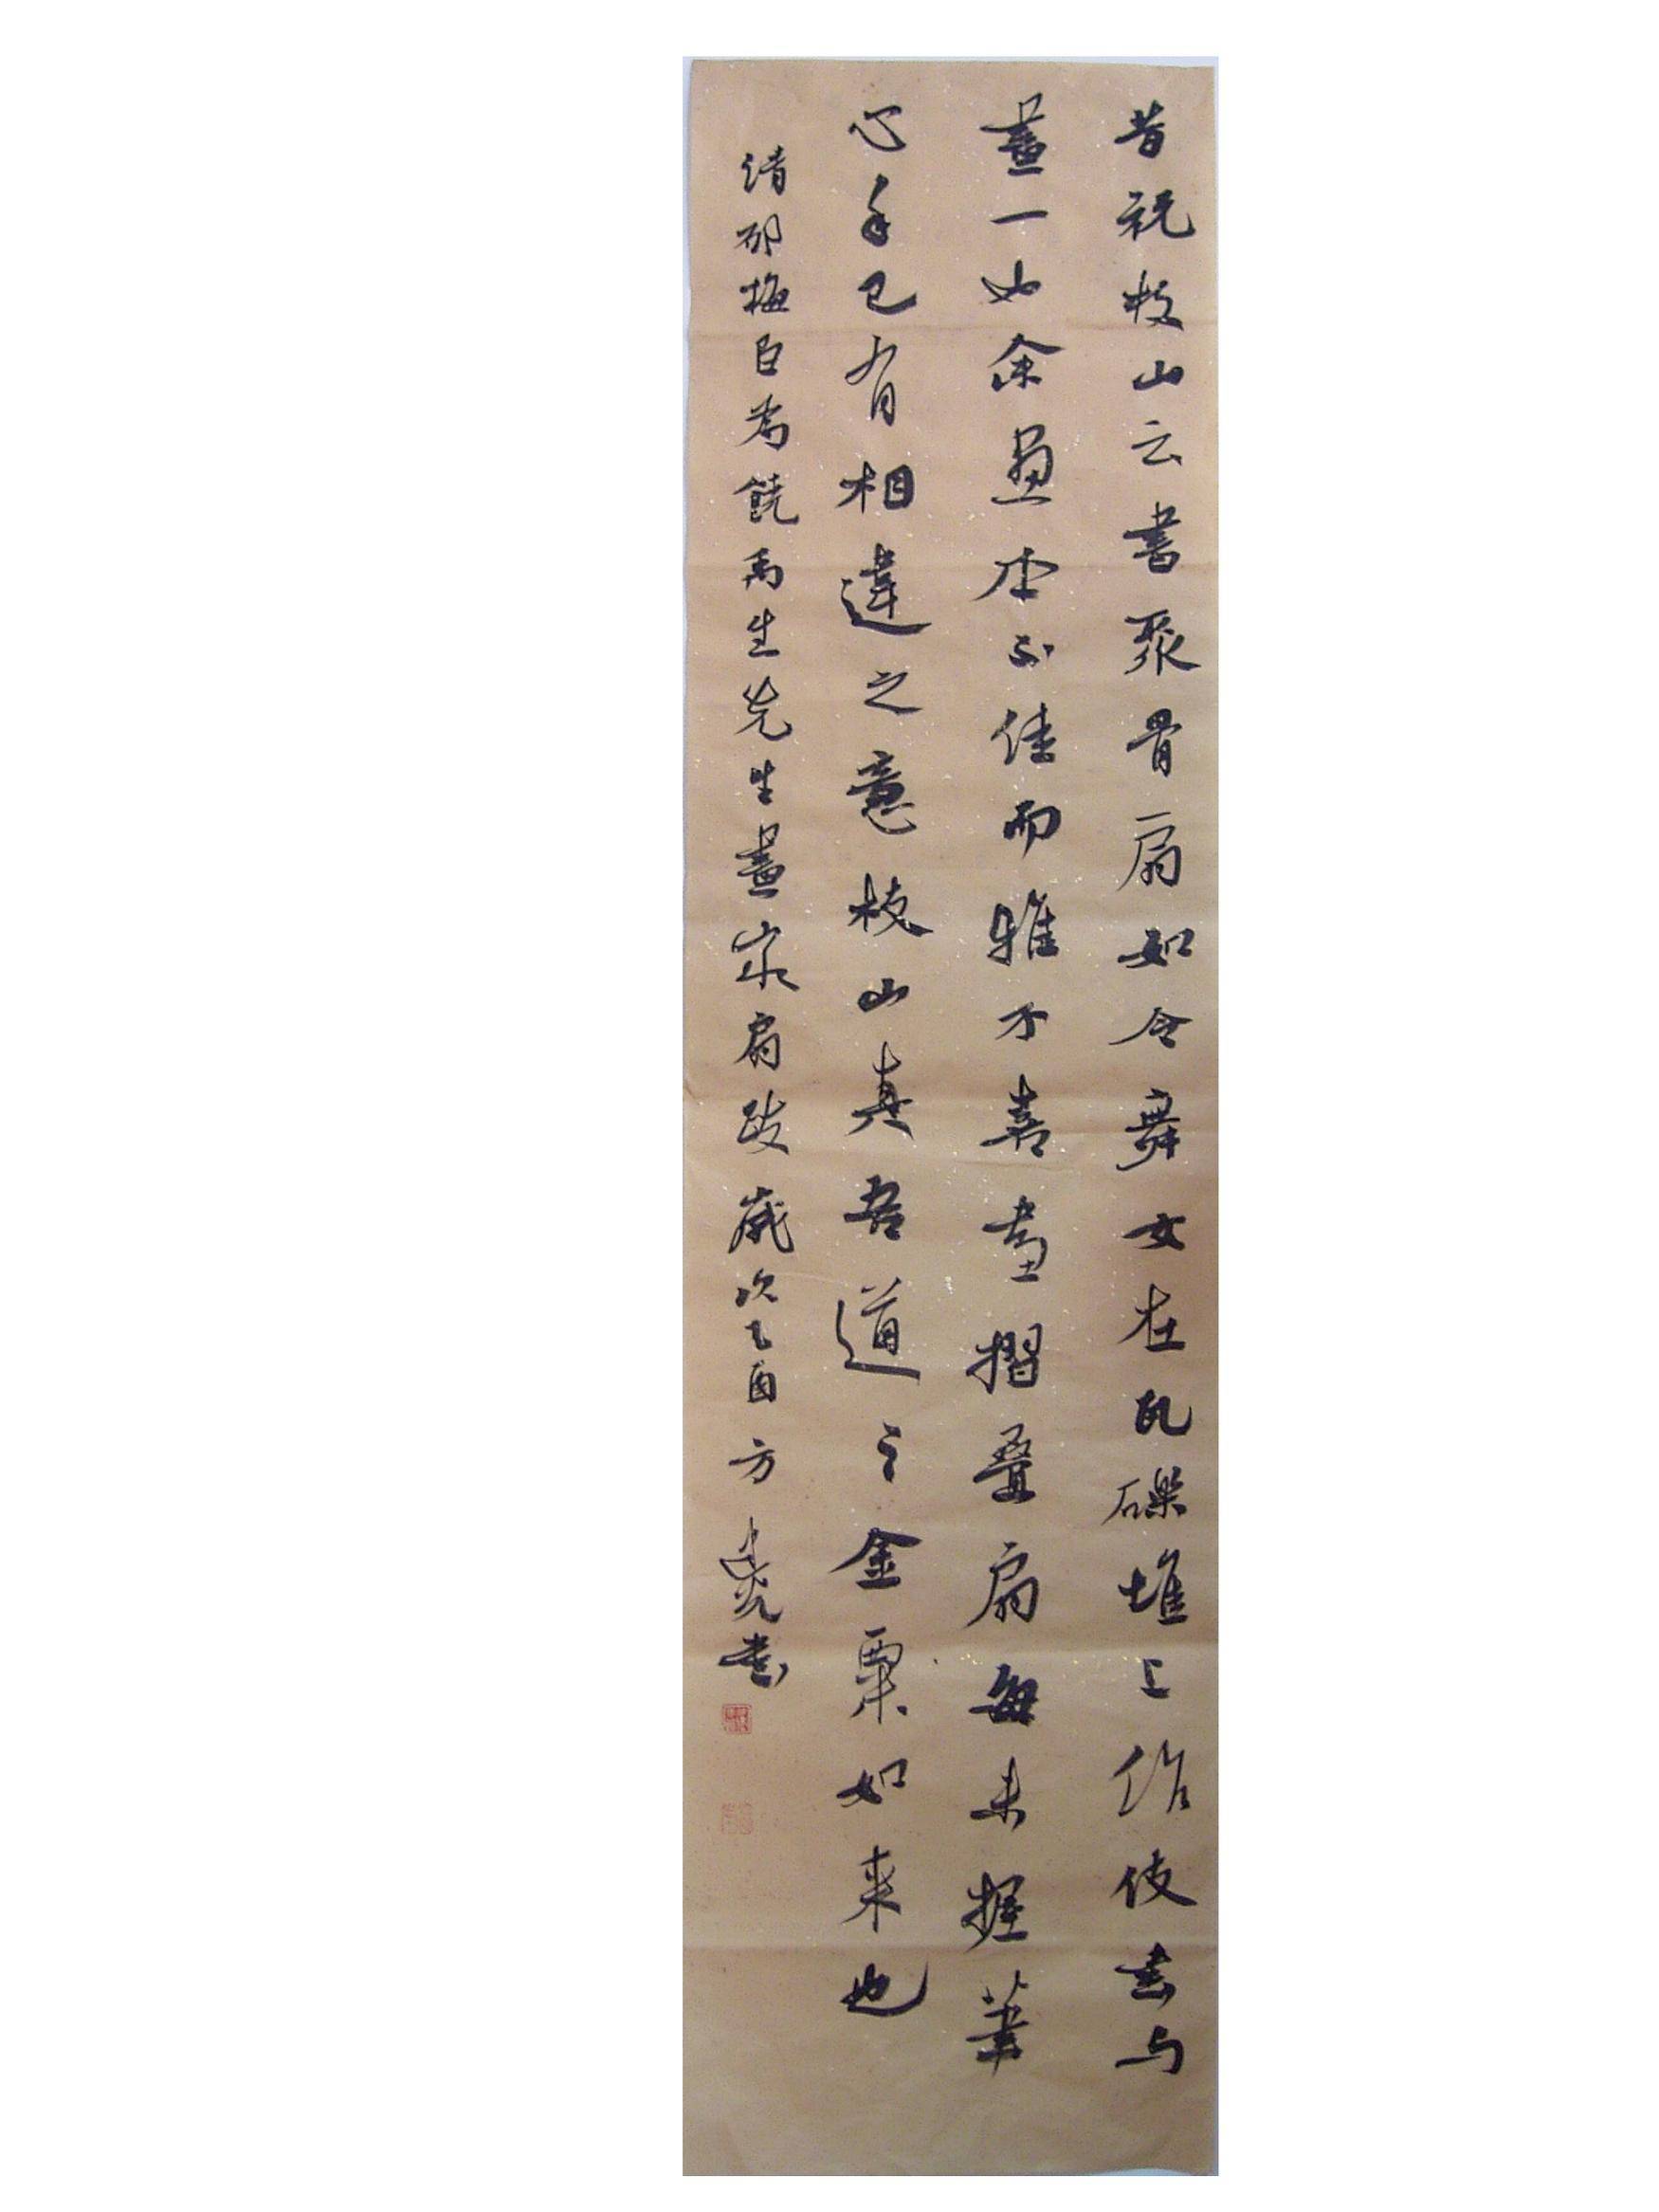 昔祝枝山云書聚骨扇如令舞女在瓦礫堆上作伎書与
畫一也余畫本不佳而雅不喜畫摺叠扇每未握筆
心手已有相違之意枝山真吾道之金粟如来也
清邵梅臣為饒禹生先生畫家扇跋歲次乙酉方書